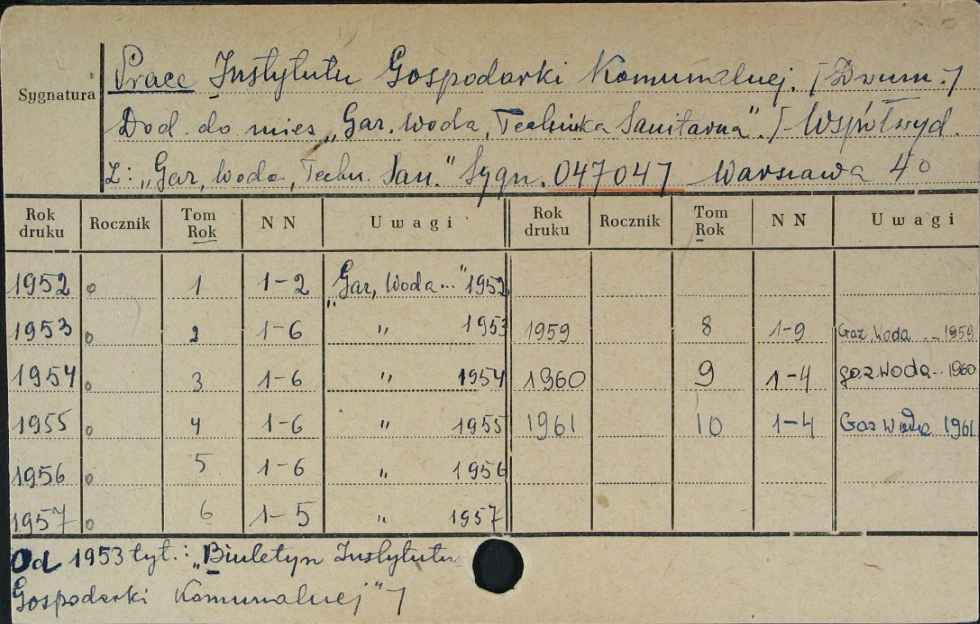 Sygnatura
Prace Instytutu Gospodarki Komunalnej. /Dwum./
Dod. do mies „Gaz. Woda, Technika Sanitarna”./-Współwyd.
z: „Gaz, Woda, Techn. San.” Sygn. 047047 Warszawa 4o
Rok druku Rocznik Tom Rok N N Uwagi Rok druku Rocznik Tom Rok N N Uwagi
1952 o 1 1-2 „Gaz, Woda..." 1952
1953 o 2 1-6 „ 1953 1959 8 1-9 Gaz. Woda ... 1959
1954 o 3 1-6 „ 1954 1960 9 1-4 gaz. woda... 1960
1955 o 4 1-6 „ 1955 1961 10 1-4 Gaz Woda 1961
1956 o 5 1-6 „ 1956
1957 o 6 1-5 „ 1957
Od 1953 tyt.: „Biuletyn Instytutu
Gospodarki Komunalnej” /